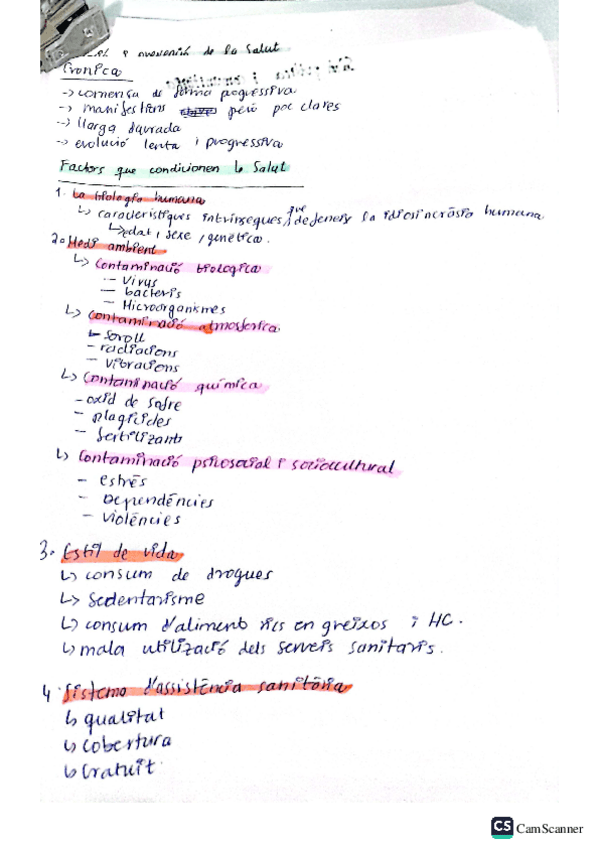 de la Salut
Cronica
-> comença de forma pogressiva
-> manifestions però poc clares
-> llarga daurada
-> evolució lenta i progressiva
Factors que condicionen la Salut
1. La biologia humana
↳ característiques intrínseques, que defeneix la idiosincràsia humana
↳ edat, sexe, genètica.
2. Medi ambient
↳ Contaminació biologica
- Virus
- bacteris
- Microorganismes
↳ Contaminació atmosferica
- Soroll
- radiacions
- vibracions
↳ Contaminació química
- oxid de sofre
- plagicides
- fertilizants
↳ Contaminació psicosocial i sociocultural
- estrés
- Dependències
- violències
3. Estil de vida
↳ consum de drogues
↳ Sedentarisme
↳ consum d'aliments rics en greixos i HC.
↳ mala utilizació dels serveis sanitaris.
4 Sistema d'assistència sanitària
↳ qualitat
↳ cobertura
↳ Gratuït
CS CamScanner